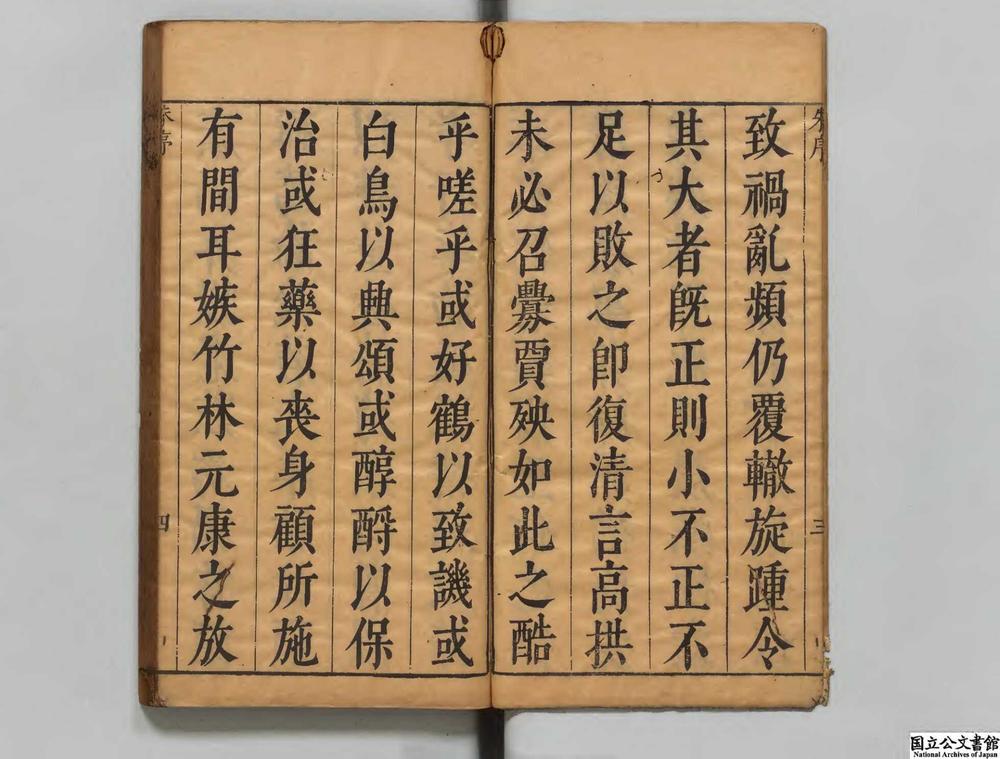 致禍亂頻仍覆轍旋踵令
其大者旣正則小不正不
足以敗之卽復清言高拱
未必召釁賈殃如此之酷
三
乎嗟乎或好鶴以致譏或
白鳥以興頌或醇酹以保
治或狂藥以喪身顧所施
有間耳嫉竹林元康之放
四
国立公文書館
National Archives of Japan